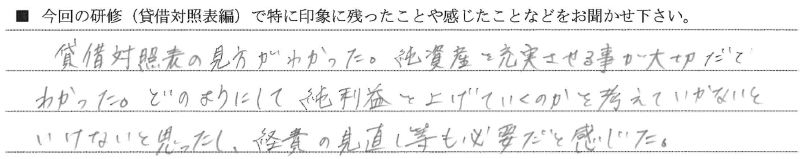 ■ 今回の研修（貸借対照表編）で特に印象に残ったことや感じたことなどをお聞かせ下さい。
貸借対照表の見方がわかった。純資産を充実させる事が大切だと
わかった。どのようにして純利益を上げていくのかを考えていかないと
いけないと思ったし、経費の見直し等も必要だと感じた。